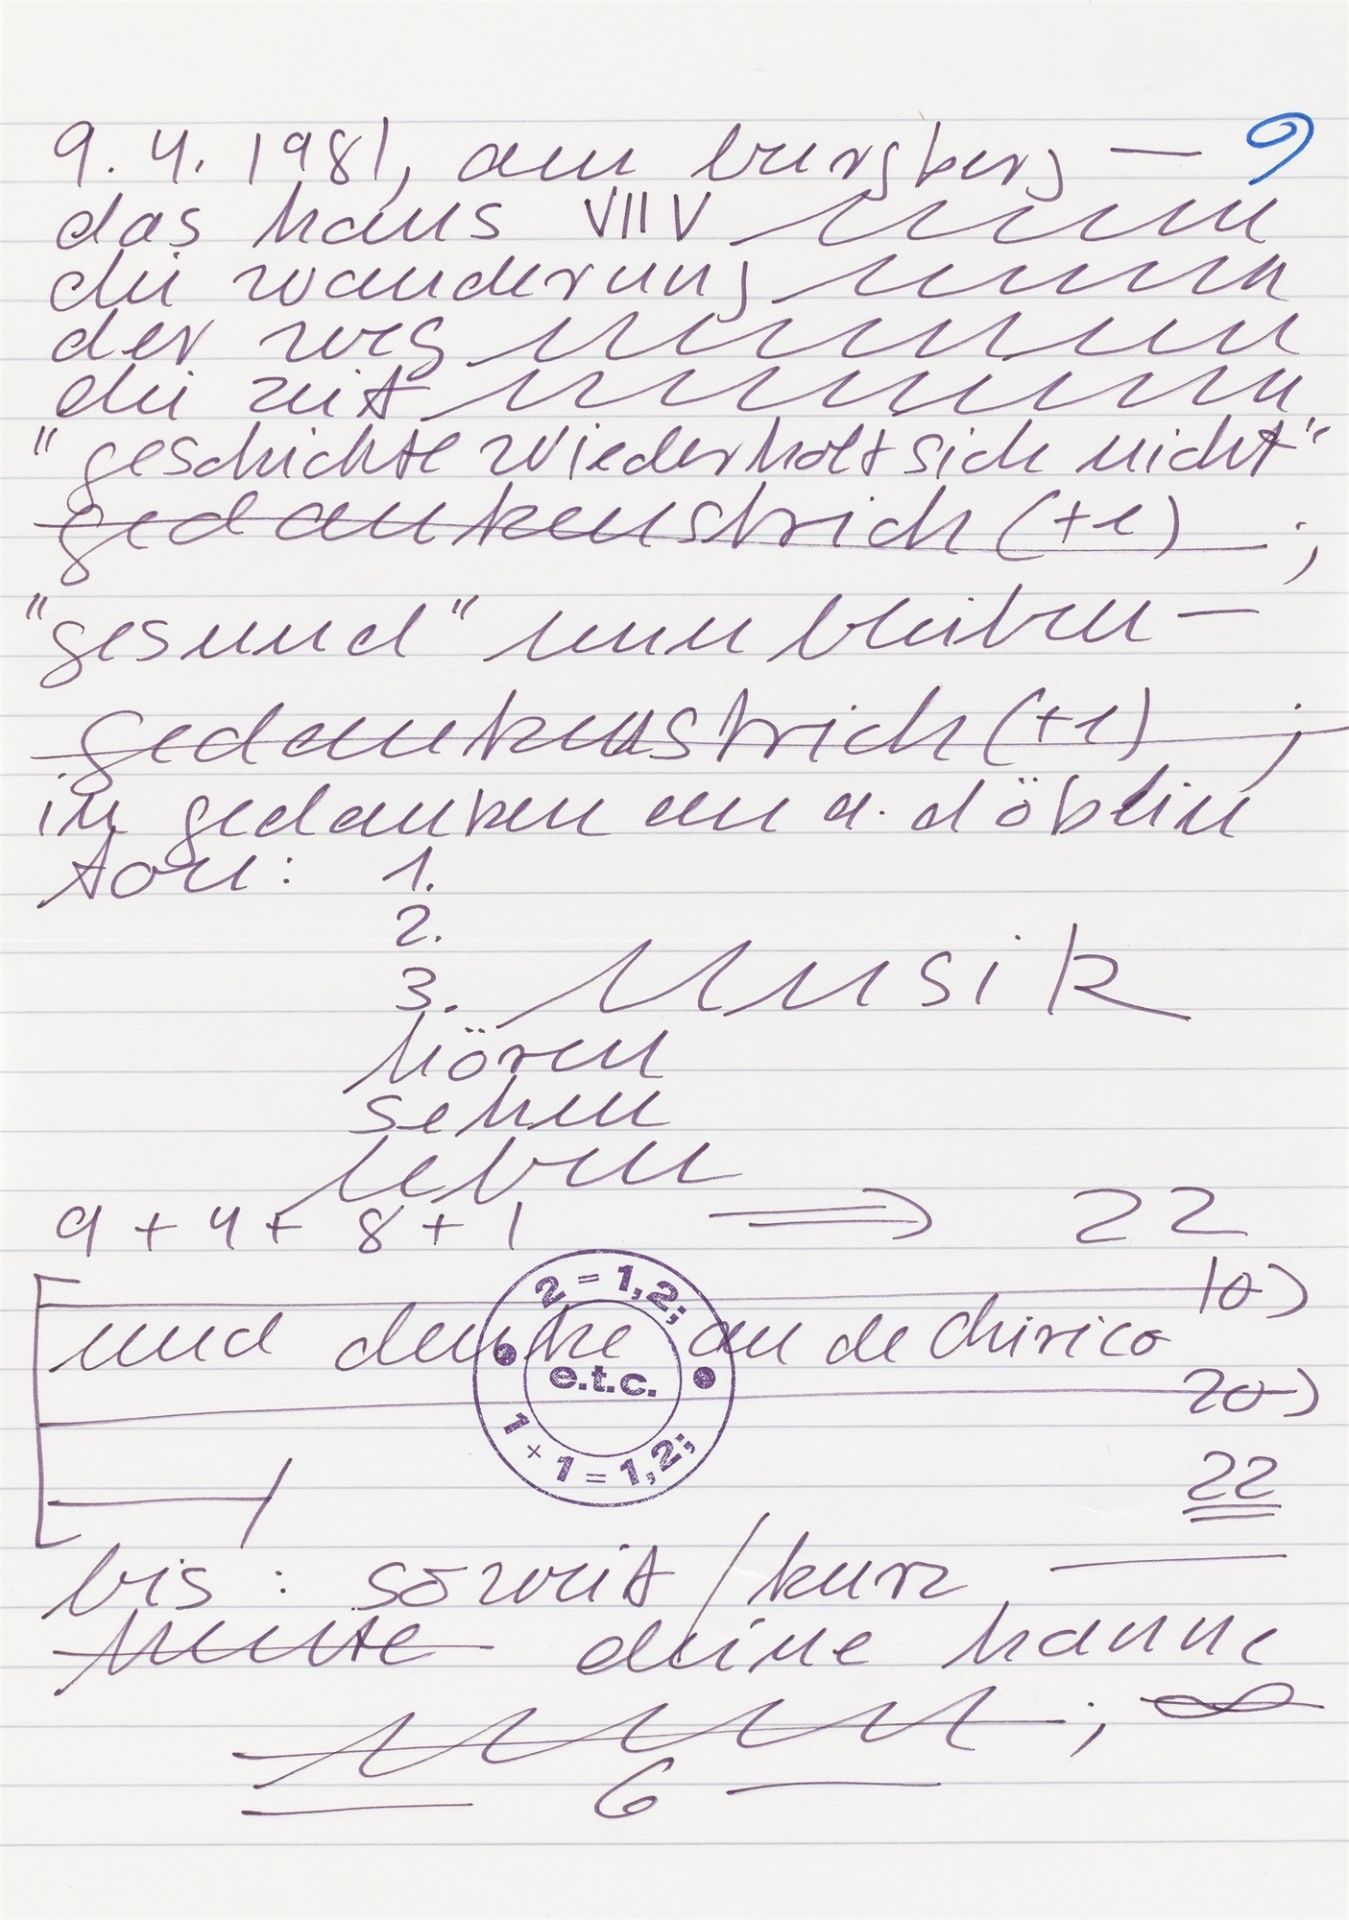 9. 4. 1981, am burgberg — 9
das haus VIIV
die wanderung
der weg
die zeit
"geschichte wiederholt sich nicht"
gedankenstrich (+1) ;
"gesund" nun bleiben —
gedankenstrich (+1) ;
in gedanken an a. döblin
ton: 1.
2.
3. Musik
hören
sehen
leben
9 + 4 + 8 + 1 ⟹ 22
10)
und denke an de Chirico
20)
22
2 = 1,2;
e.t.c.
1 × 1 = 1,2;
bis : soweit / kurz
heute deine hanne
; ∞
6